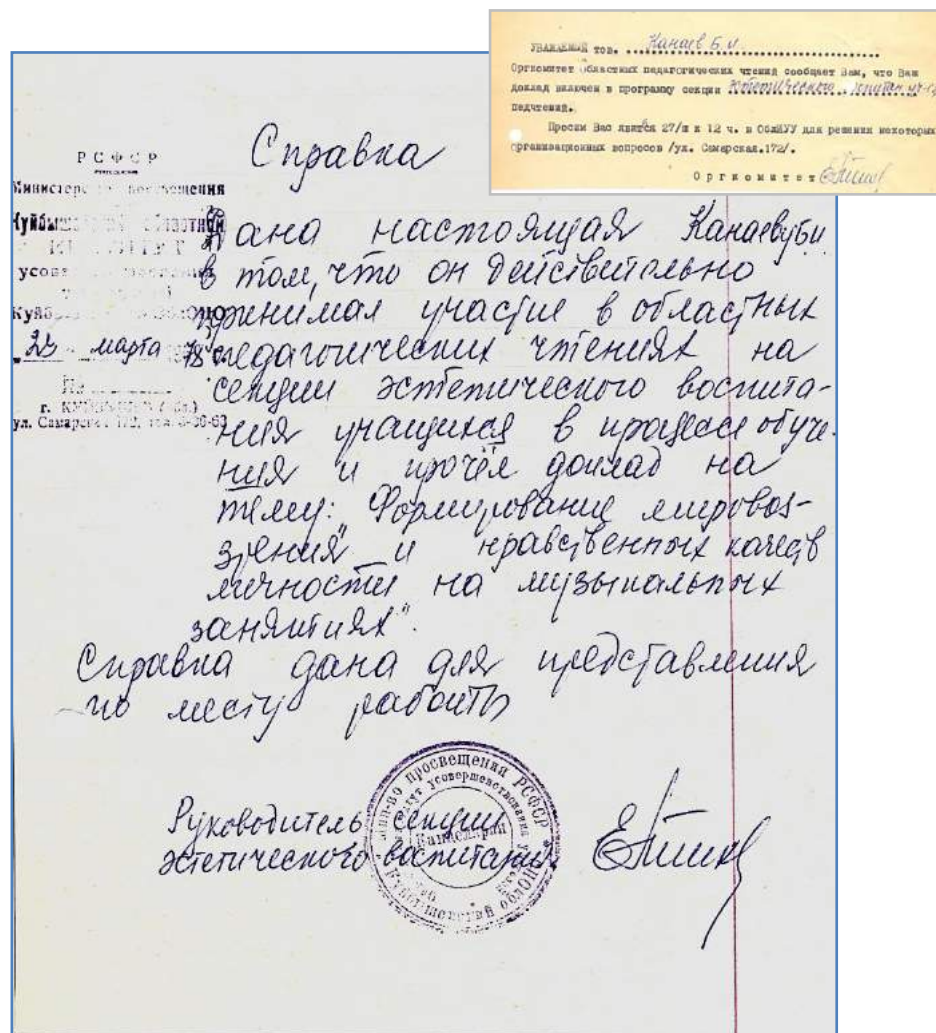 УВАЖАЕМЫЙ тов. Канаев Б.И.
Оргкомитет областных педагогических чтений сообщает Вам, что Ваш
доклад включен в программу секции эстетического
педчтений.
Просим Вас явится 27/ш к 12 ч. в ОблИУУ для решения некоторых
организационных вопросов /ул. Самарская.172/.
Оргкомитет
Справка
РСФСР
Министерство просвещения
Куйбышевский областной
усовершенствования
марта
г. КУЙБЫШЕВ
ул. Самарская 172,
Дана настоящая Канаеву Би
в том, что он действительно
принимал участие в областных
педагогических чтениях на
секции эстетического воспита-
ния учащихся в процессе обуче-
ния и прочёл доклад на
тему: Формирование мировоз-
зрения" и нравственных качеств
личности на музыкальных
занятиях".
Справка дана для представления
по месту работы
Руководитель секции
эстетического воспитания
Мин-во просвещения РСФСР
Институт усовершенствования
Канцелярия
Куйбышевский облОНО